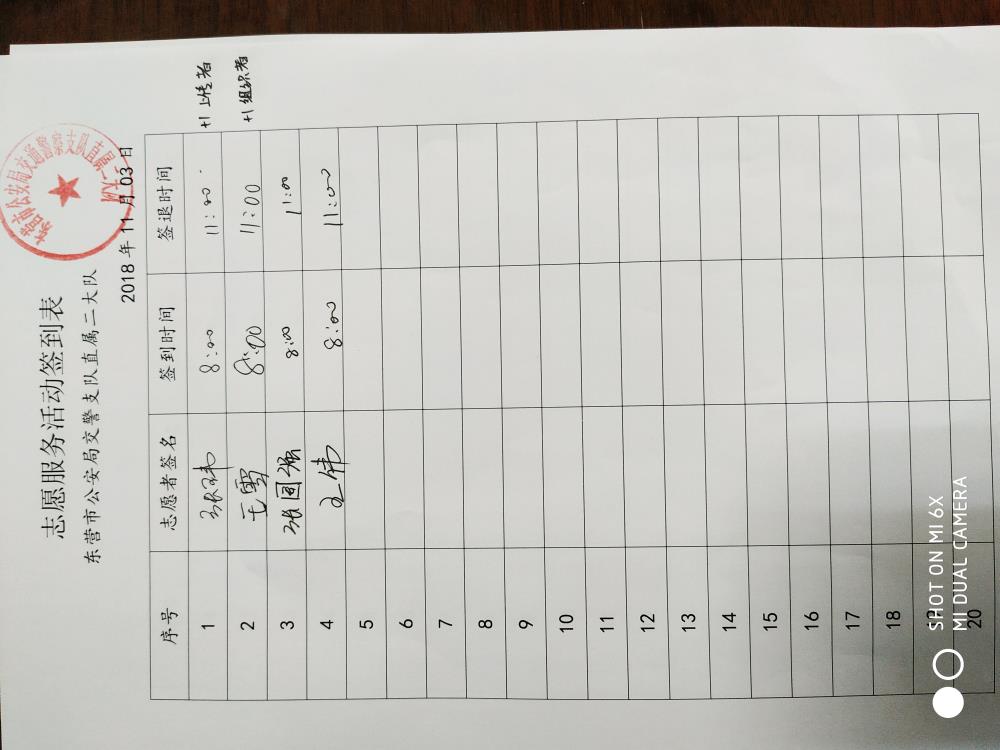 志愿服务活动签到表
东营市公安局交警支队直属二大队
2018 年 11 月 03 日
序号 志愿者签名 签到时间 签退时间
1 张玮 8:00 11:00 +1 上传者
2 王雪 8:00 11:00 +1 组织者
3 张国强 8:00 11:00
4 王伟 8:00 11:00
5
6
7
8
9
10
11
12
13
14
15
16
17
18
19
20
SHOT ON MI 6X
MI DUAL CAMERA